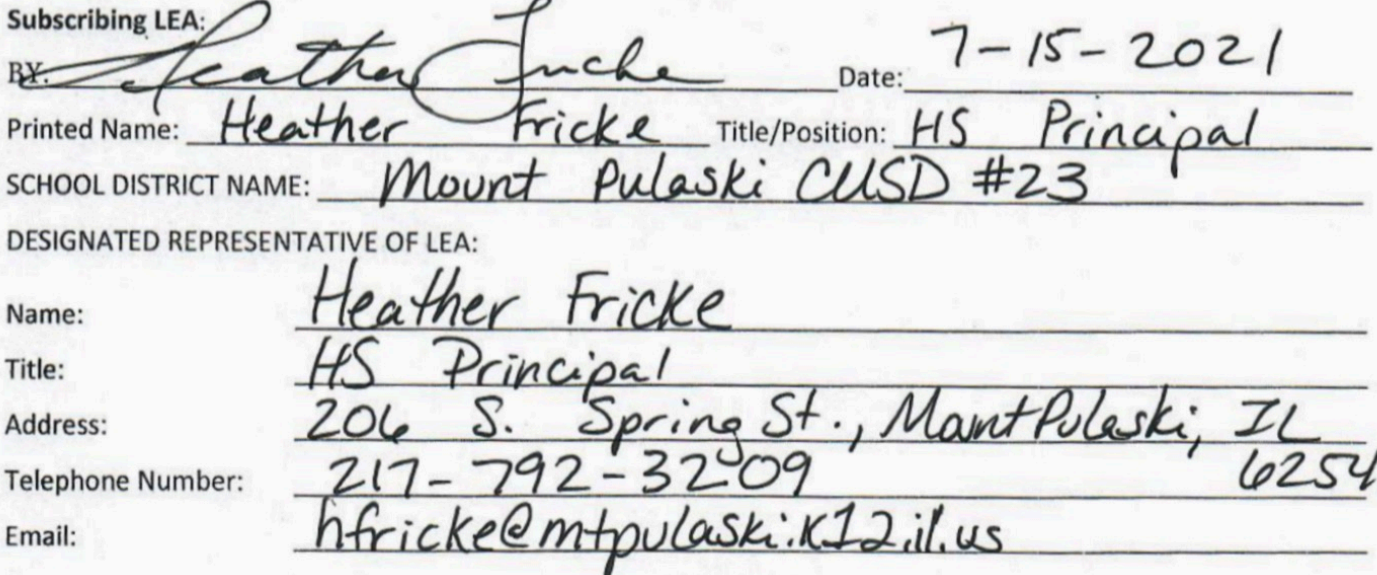 Subscribing LEA:
BY: Heather Fricke Date: 7-15-2021
Printed Name: Heather Fricke Title/Position: HS Principal
SCHOOL DISTRICT NAME: Mount Pulaski CUSD #23
DESIGNATED REPRESENTATIVE OF LEA:
Name: Heather Fricke
Title: HS Principal
Address: 206 S. Spring St., Mount Pulaski, IL
Telephone Number: 217-792-3209 6254
Email: hfricke@mtpulaski.k12.il.us